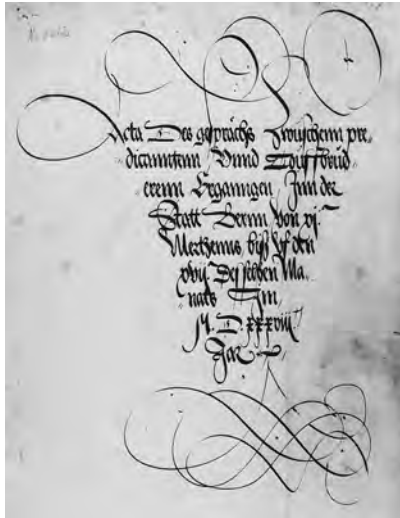 Acta Des gesprächs zwüschenn pre-
dicanntenn Vnnd Touffbrüd
erenn Ergangen Jnn der
Statt Bernn von xj.
Mertzenns biß vf den
xvij. Desselben Ma-
nats Jm
M. D. xxxviij
Jar